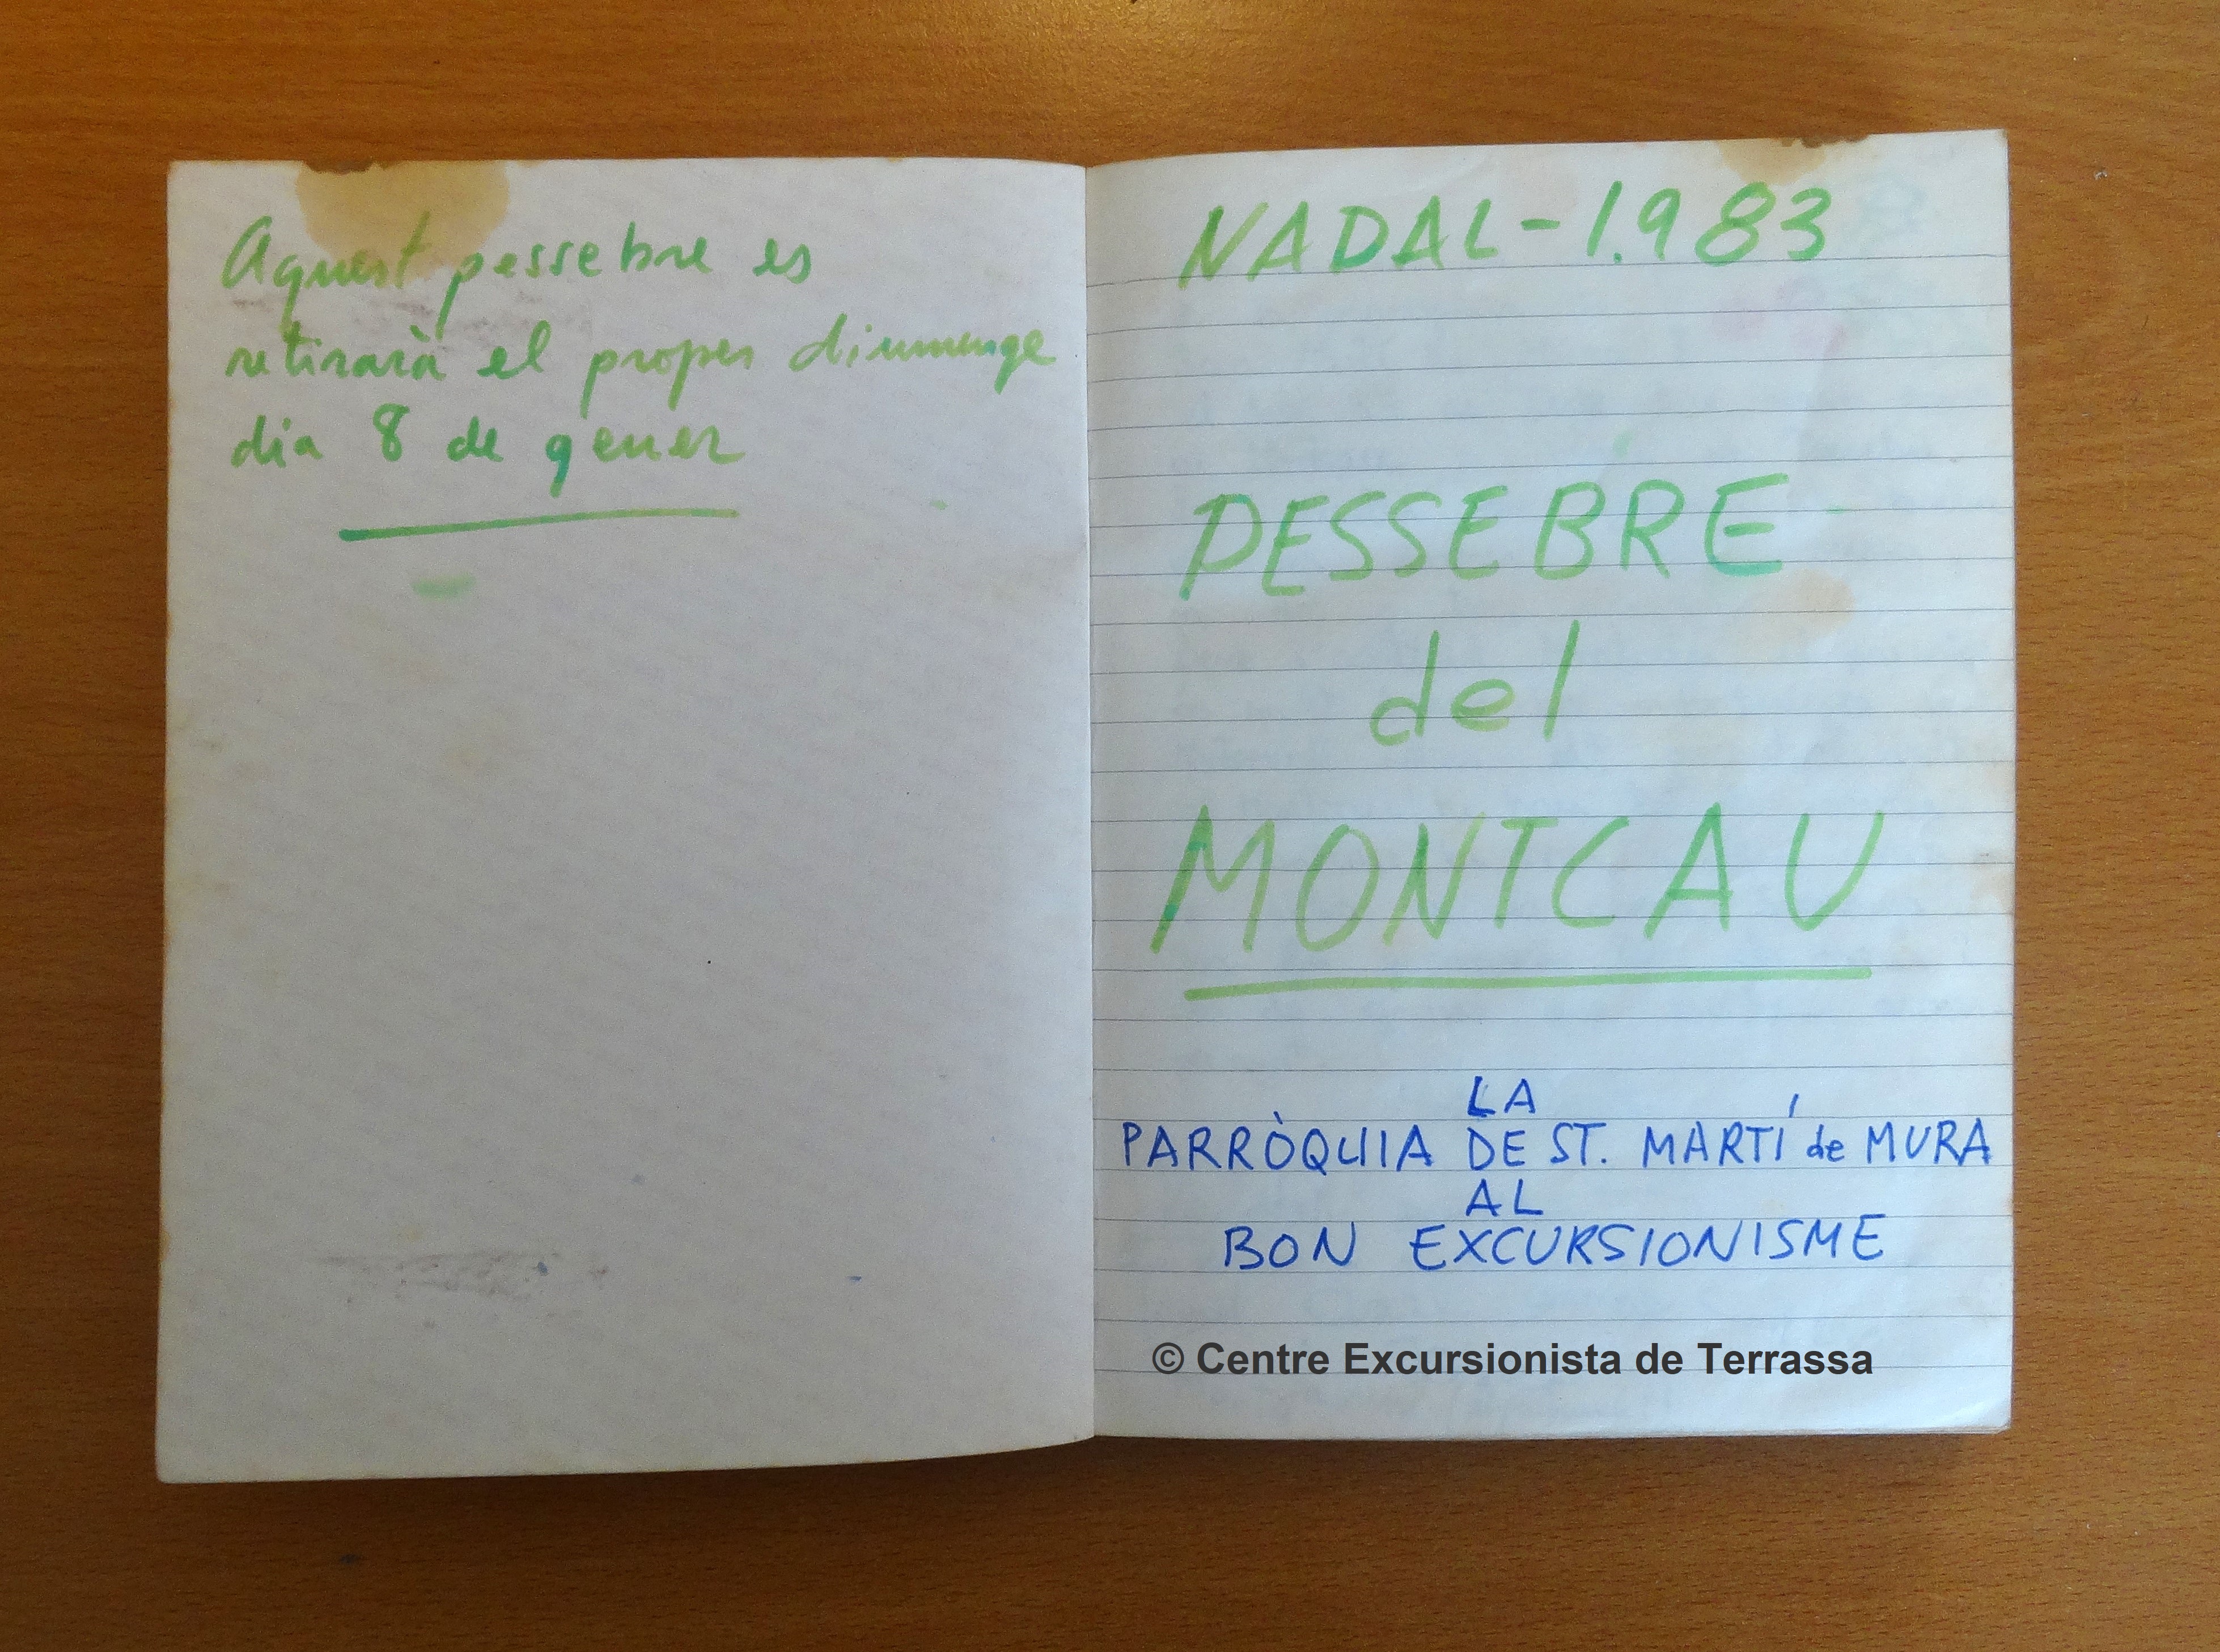 Aquest pessebre es
retirarà el proper diumenge
dia 8 de gener
NADAL - 1.983
PESSEBRE
del
MONTCAU
LA
PARRÒQUIA DE ST. MARTÍ de MURA
AL
BON EXCURSIONISME
© Centre Excursionista de Terrassa